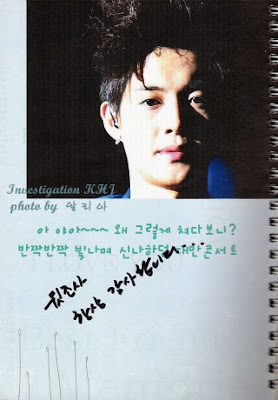 Investigation KHJ
photo by 알리아
아 야아~~~ 왜 그렇게 쳐다보니?
반짝반짝 빛나며 신나하던 대만콘서트
뒷조사
항상 감사합니다...